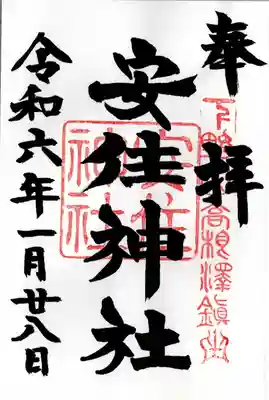 奉拝
下野高根澤鎮座
安住神社
安住神社
令和六年一月廿八日